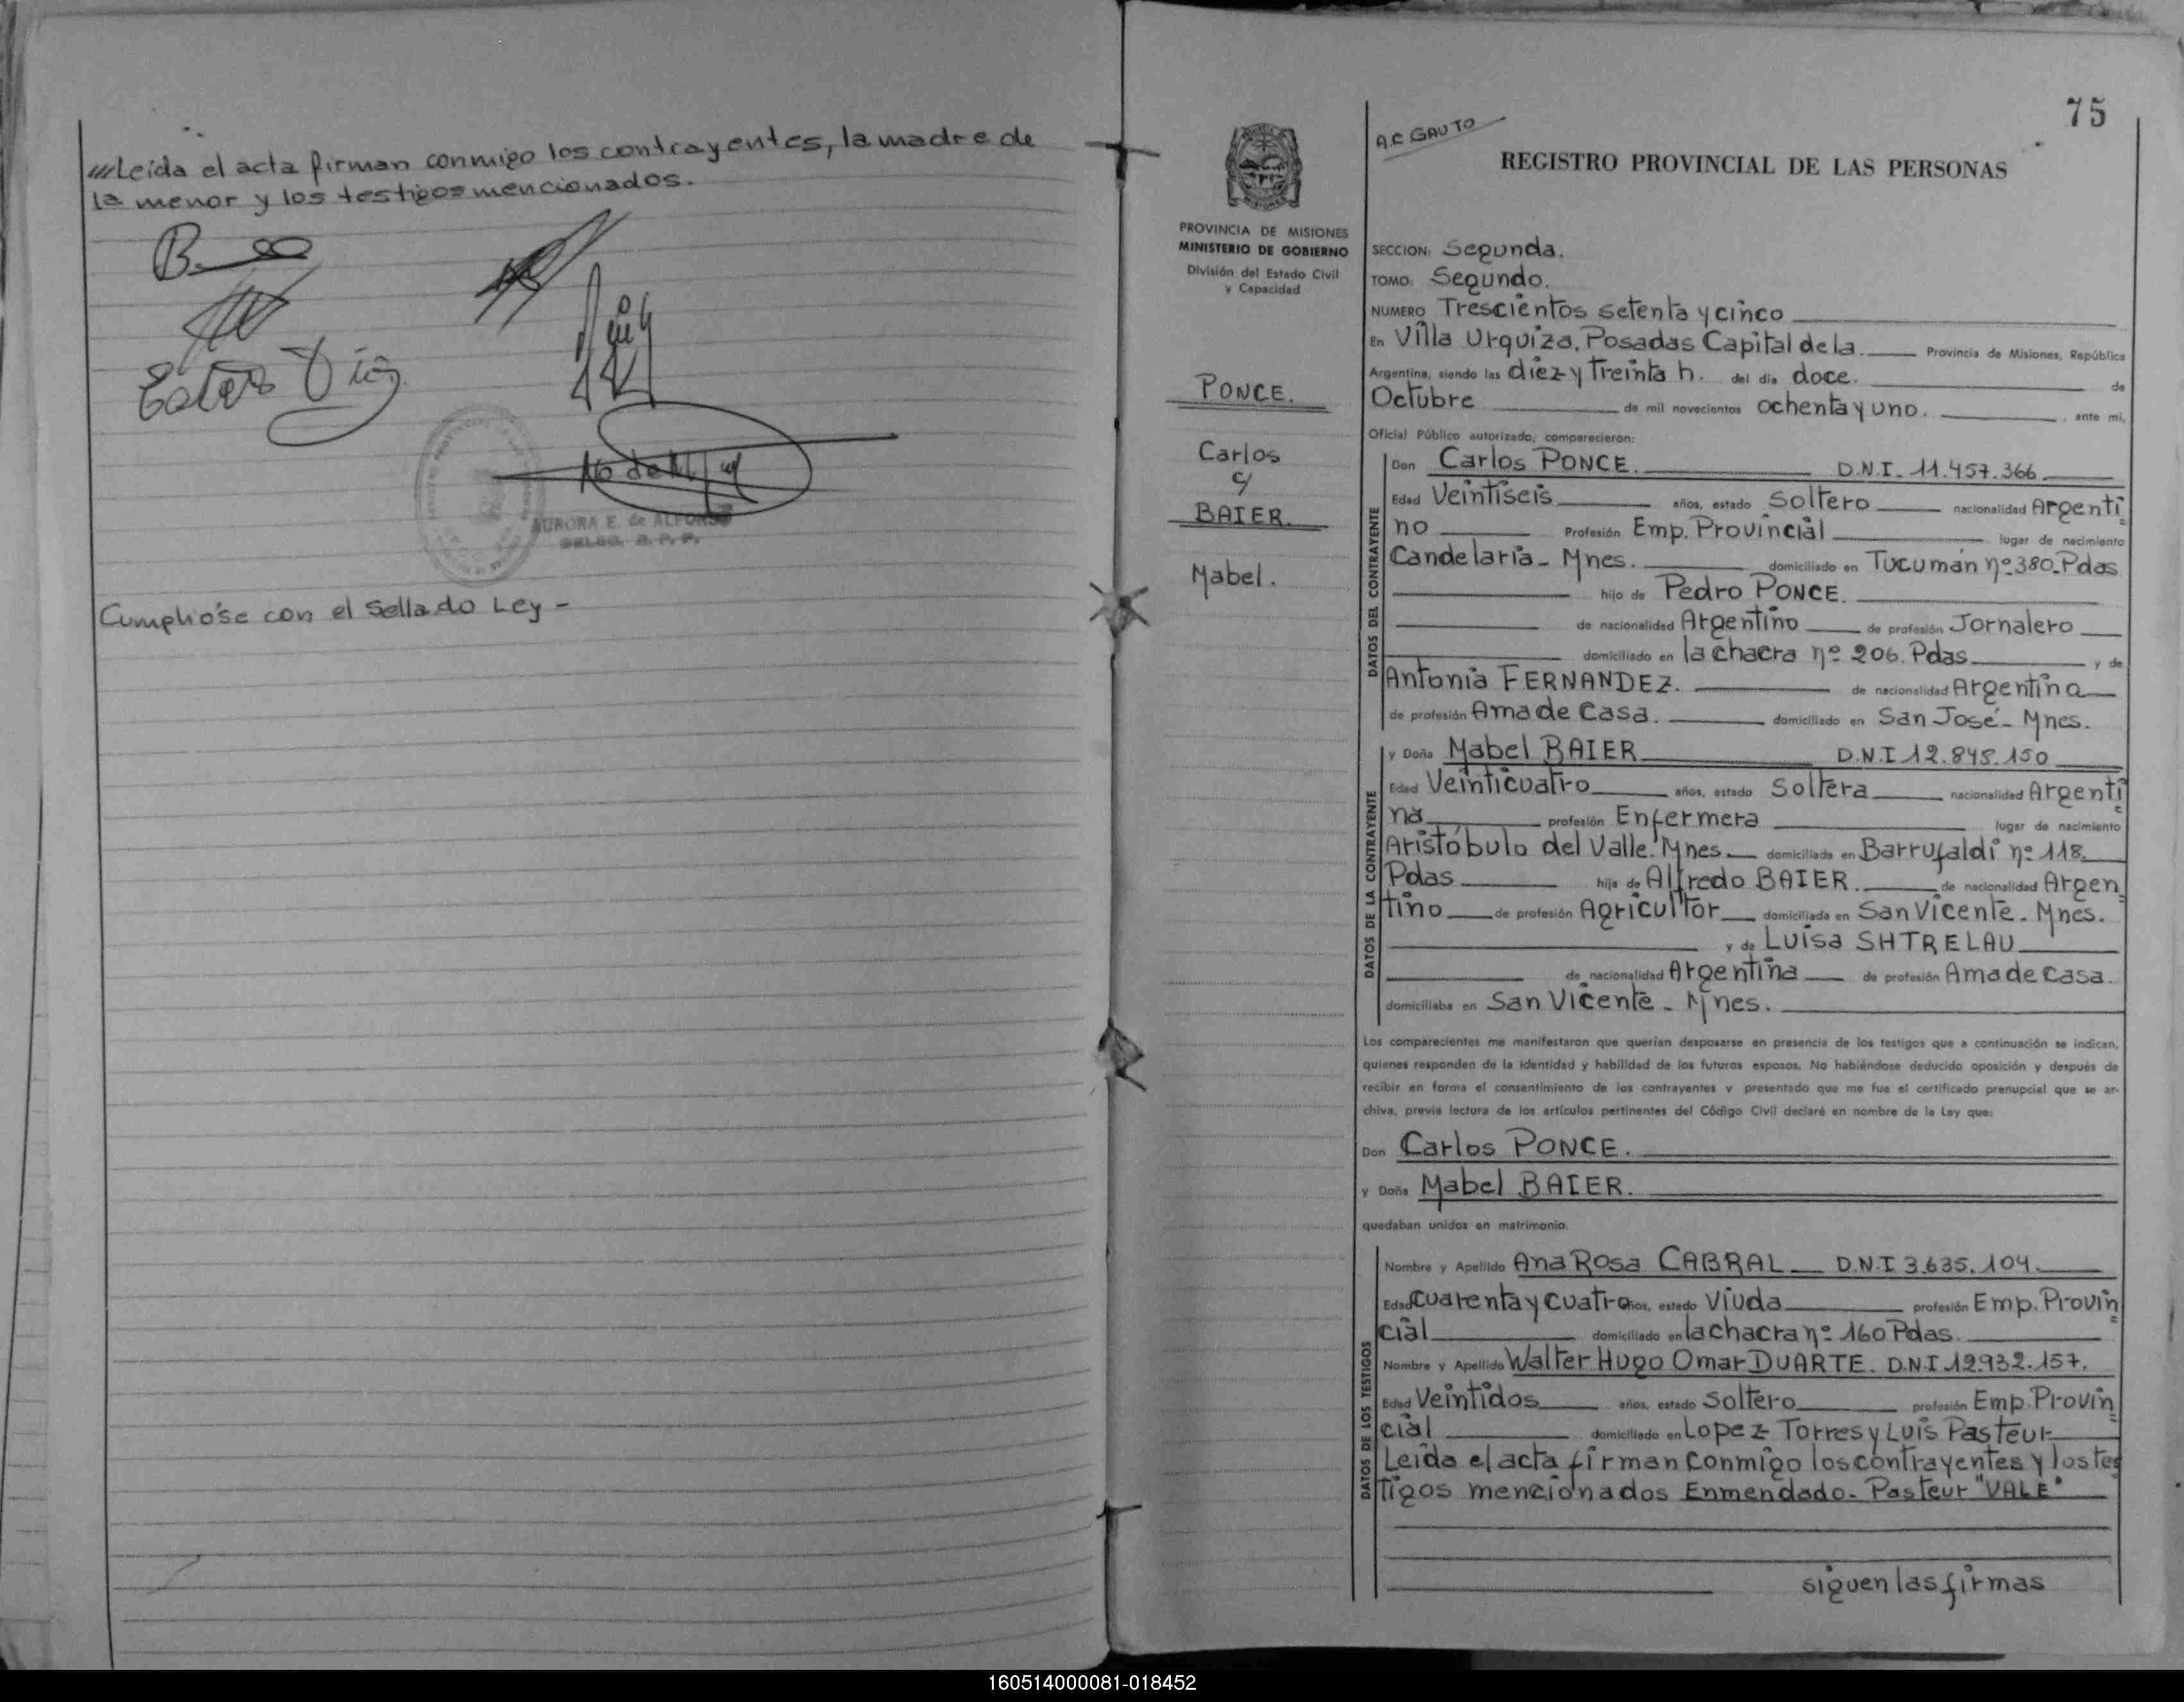 ///Leída el acta firman conmigo los contrayentes, la madre de
la menor y los testigos mencionados.
AURORA E. de ALFONSO
DELEG. R. P. P.
Cumplióse con el Sellado Ley -
75
A.C GAUTO
REGISTRO PROVINCIAL DE LAS PERSONAS
PROVINCIA DE MISIONES
MINISTERIO DE GOBIERNO
División del Estado Civil
y Capacidad
PONCE.
Carlos
c/
BAIER.
Mabel.
SECCION: Segunda.
TOMO: Segundo.
NUMERO Trescientos setenta y cinco
En Villa Urquiza, Posadas Capital de la. Provincia de Misiones, República
Argentina, siendo las diez y treinta h. del día doce. de
Octubre de mil novecientos ochenta y uno. , ante mí,
Oficial Público autorizado, comparecieron:
DATOS DEL CONTRAYENTE
Don Carlos PONCE. D.N.I. 11.457.366
Edad Veintiseis años, estado Soltero nacionalidad Argenti
no Profesión Emp. Provincial lugar de nacimiento
Candelaria - Mnes. domiciliado en Tucumán nº 380-Pdas
hijo de Pedro PONCE.
de nacionalidad Argentino de profesión Jornalero
domiciliado en la chacra nº 206. Pdas y de
Antonia FERNANDEZ. de nacionalidad Argentina
de profesión Ama de Casa. domiciliado en San José - Mnes.
DATOS DE LA CONTRAYENTE
y Doña Mabel BAIER D.N.I 12.848.150
Edad Veinticuatro años, estado Soltera nacionalidad Argenti
na profesión Enfermera lugar de nacimiento
Aristóbulo del Valle. Mnes domiciliada en Barrufaldi nº 118.
Pdas hija de Alfredo BAIER. de nacionalidad Argen
tino de profesión Agricultor domiciliada en San Vicente - Mnes.
y de Luisa SHTRELAU
de nacionalidad Argentina de profesión Ama de casa.
domiciliaba en San Vicente - Mnes.
Los comparecientes me manifestaron que querían desposarse en presencia de los testigos que a continuación se indican,
quienes responden de la identidad y habilidad de los futuros esposos. No habiéndose deducido oposición y después de
recibir en forma el consentimiento de los contrayentes y presentado que me fue el certificado prenupcial que se ar-
chiva, previa lectura de los artículos pertinentes del Código Civil declaré en nombre de la Ley que:
Don Carlos PONCE.
y Doña Mabel BAIER.
quedaban unidos en matrimonio.
DATOS DE LOS TESTIGOS
Nombre y Apellido Ana Rosa CABRAL D.N.I 3.635.104
Edad cuarenta y cuatro años, estado Viuda profesión Emp. Provin
cial domiciliado en la chacra nº 160 Pdas.
Nombre y Apellido Walter Hugo Omar DUARTE. D.N.I 12.932.157.
Edad Veintidos años, estado Soltero profesión Emp. Provin
cial domiciliado en Lopez Torres y Luis Pasteur
Leida el acta firman conmigo los contrayentes y los tes
tigos mencionados Enmendado - Pasteur "VALE"
siguen las firmas
160514000081-018452